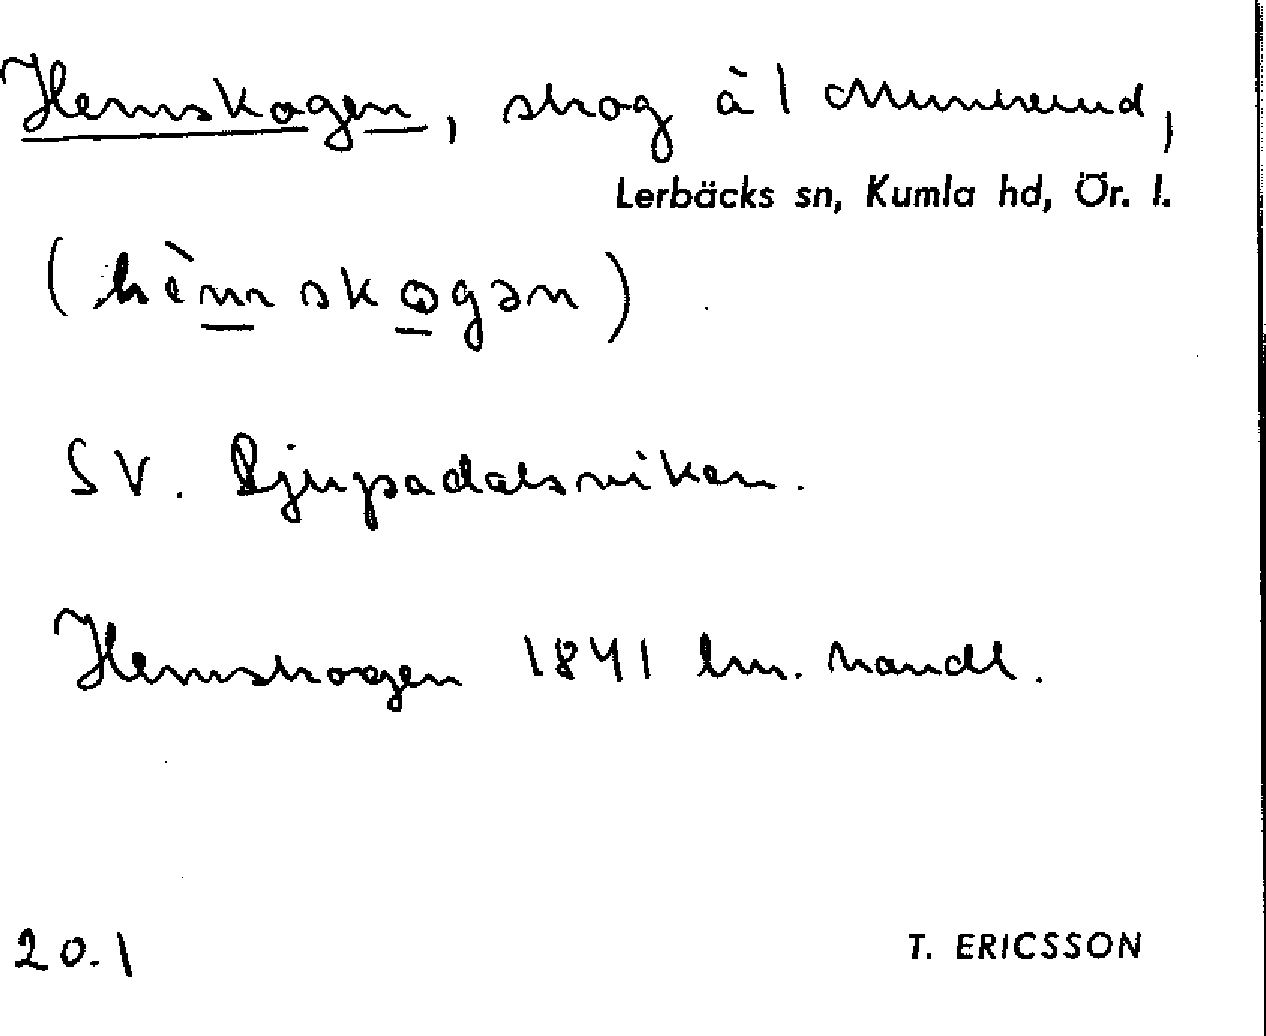 Hemskogen, skog å 1
Lerbäcks sn, Kumla hd, Ör. l.
(hèmskogən)
SV. Djupadalsviken.
Hemskogen 1841 lm. handl.
20.1
T. ERICSSON